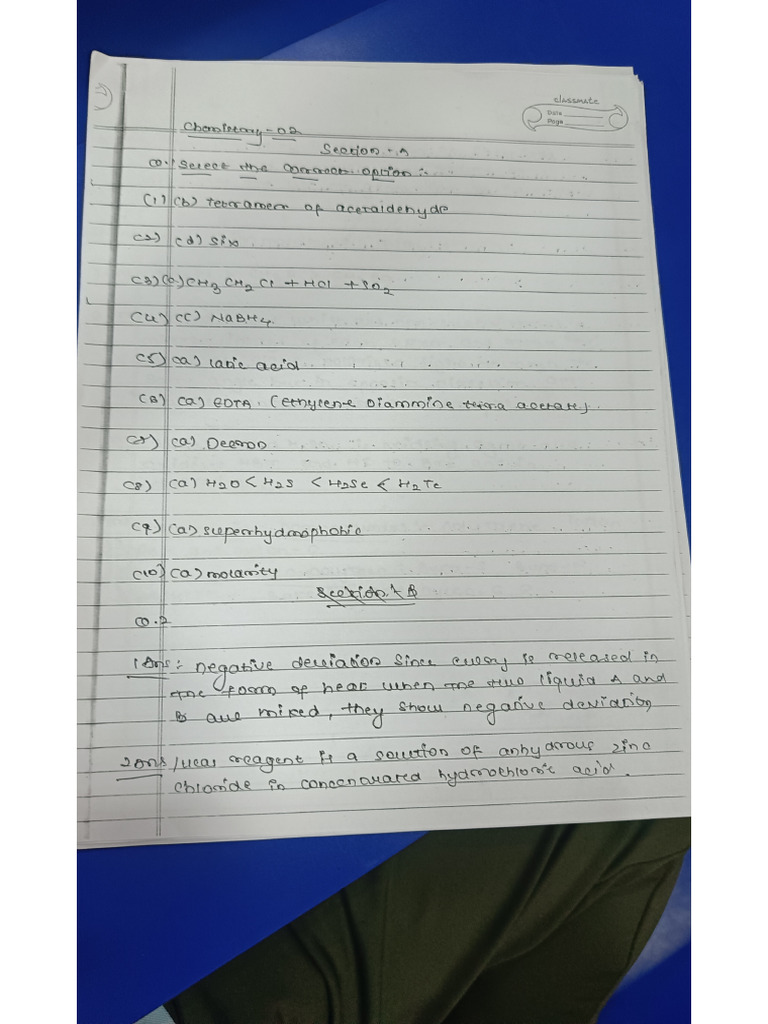 classmate
Date
Page
Chemistry-02
Section-A
Q. Select the correct option :-
(1) (b) tetramer of acetaldehyde
(2) (d) six
(3) CH3 CH2 Cl + HCl + SO2
(4) (c) NaBH4
(5) (a) latic acid
(a) EDTA. (ethylene Diammine tetra acetate)
(a) Decron
(8) (a) H2O < H2S < H2Se < H2Te
(9) (a) superhydrophobic
(10) (a) molarity
Section B
Q.2
1 Ans :- negative deviation since energy is released in
the form of heat when the two liquid A and
B are mixed, they show negative deviation
2 Ans reagent is a solution of anhydrous zinc
chloride in concentrated hydrochloric acid.